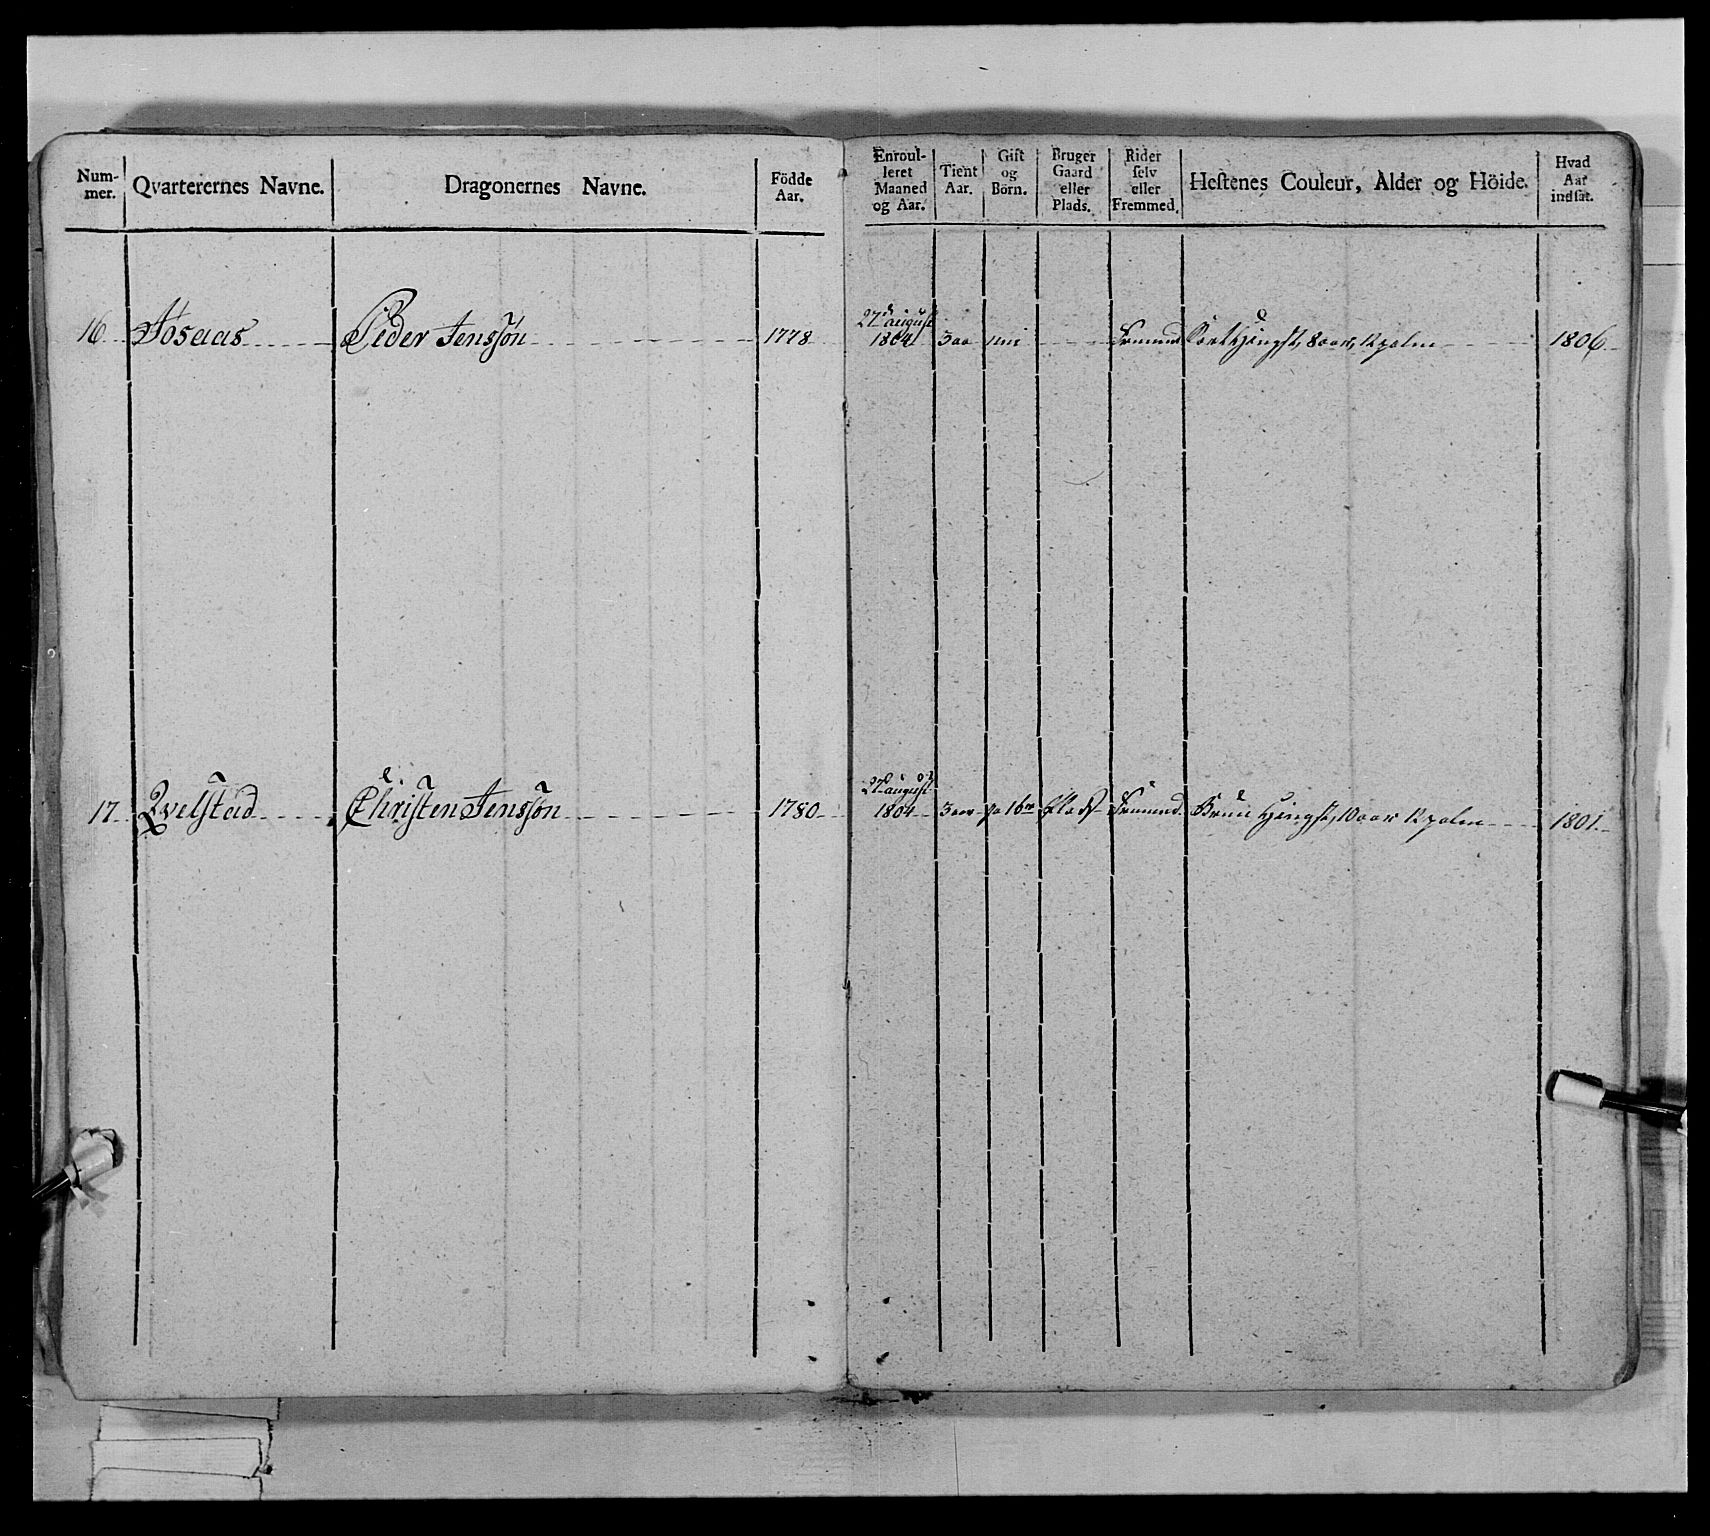 Num-mer. Qvarterernes Navne. Dragonernes Navne. Födde Aar. Enroul-leret Maaned og Aar. Tient Aar. Gift og Börn. Bruger Gaard eller Plads. Rider selv eller Fremmed. Hestenes Couleur, Alder og Höide. Hvad Aar indsat.
27d august
16 Aosaas Peder Jenssøn 1778 1804 3 aar nei Fremmd Sort Hingst, 8 aar, 12 palm 1806
27d august
17 Qvelstad Christen Jenssøn 1780 1804 3 aar ja 1 bn Plads Fremmd Bruun Hingst, 10 aar 12 palm 1801